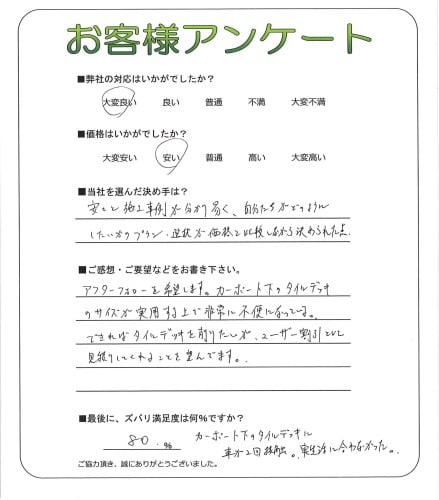 お客様アンケート
■弊社の対応はいかがでしたか？
大変良い 良い 普通 不満 大変不満
■価格はいかがでしたか？
大変安い 安い 普通 高い 大変高い
■当社を選んだ決め手は？
安さと施工事例が分かり易く、自分たちがどのように
したいかのプラン・選択が価格と比較しながら決められた点
■ご感想・ご要望などをお書き下さい。
アフターフォローを希望します。カーポート下のタイルデッキ
のサイズが実用する上で非常に不便になっている。
できればタイルデッキを削りたいが、ユーザー割引として
見積りしてくれることを望んでます。
■最後に、ズバリ満足度は何%ですか？
80 %
カーポート下のタイルデッキに
車が2回接触。実生活に合わなかった。
ご協力頂き、誠にありがとうございました。